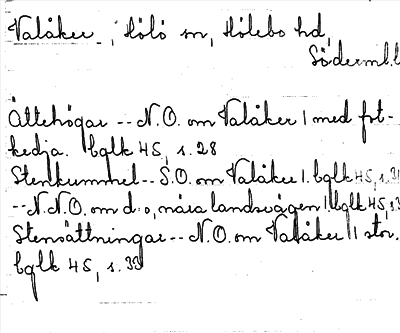 Valåker, Hölö sn, Hölebo hd,
Söderml.l
Ättehögar -- N.O. om Valåker 1 med fot-
kedja. bglk 45, s. 28
Stenkummel -- S.O. om Valåker 1. bglk 45, s. 31
-- N.N.O. om d:o, nära landsvägen 1. bglk 45, s. 3
Stensättningar -- N.O. om Valåker 11 stor.
bglk 45, s. 33